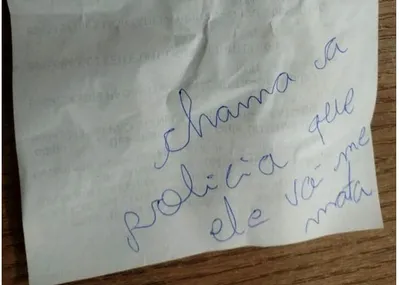 chama a
policia que
ele vai me
mata